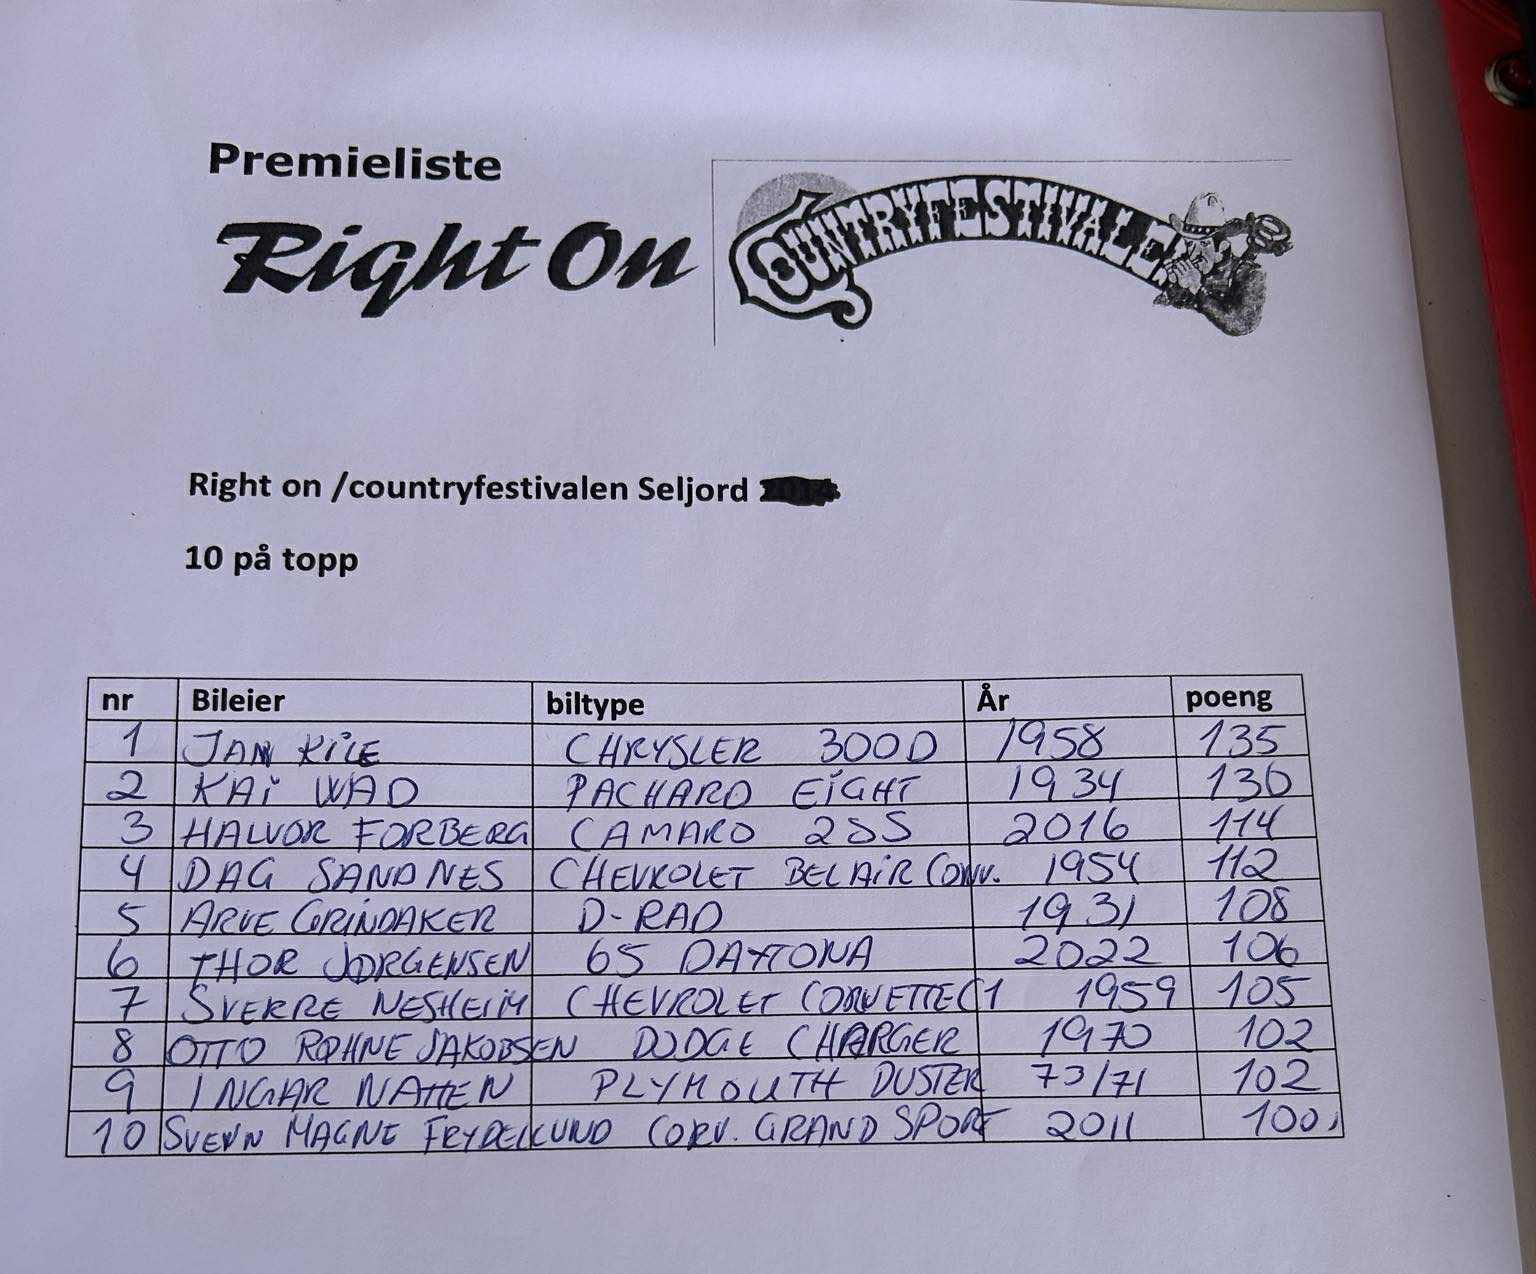 Premieliste
Right On
COUNTRYFESTIVALEN
Right on /countryfestivalen Seljord
10 på topp
nr Bileier biltype År poeng
1 JAN KILE CHRYSLER 300D 1958 135
2 KAI WAD PACHARD EIGHT 1934 130
3 HALVOR FORBERG CAMARO 2SS 2016 114
4 DAG SANDNES CHEVROLET BELAIR CONV. 1954 112
5 ARVE GRINDAKER D-RAD 1931 108
6 THOR JØRGENSEN 65 DAYTONA 2022 106
7 SVERRE NESHEIM CHEVROLET CORVETTE C1 1959 105
8 OTTO RØHNE JAKOBSEN DODGE CHARGER 1970 102
9 INGAR NATTEN PLYMOUTH DUSTER 73/71 102
10 MAGNE CORV. GRAND SPORT 2011 100,